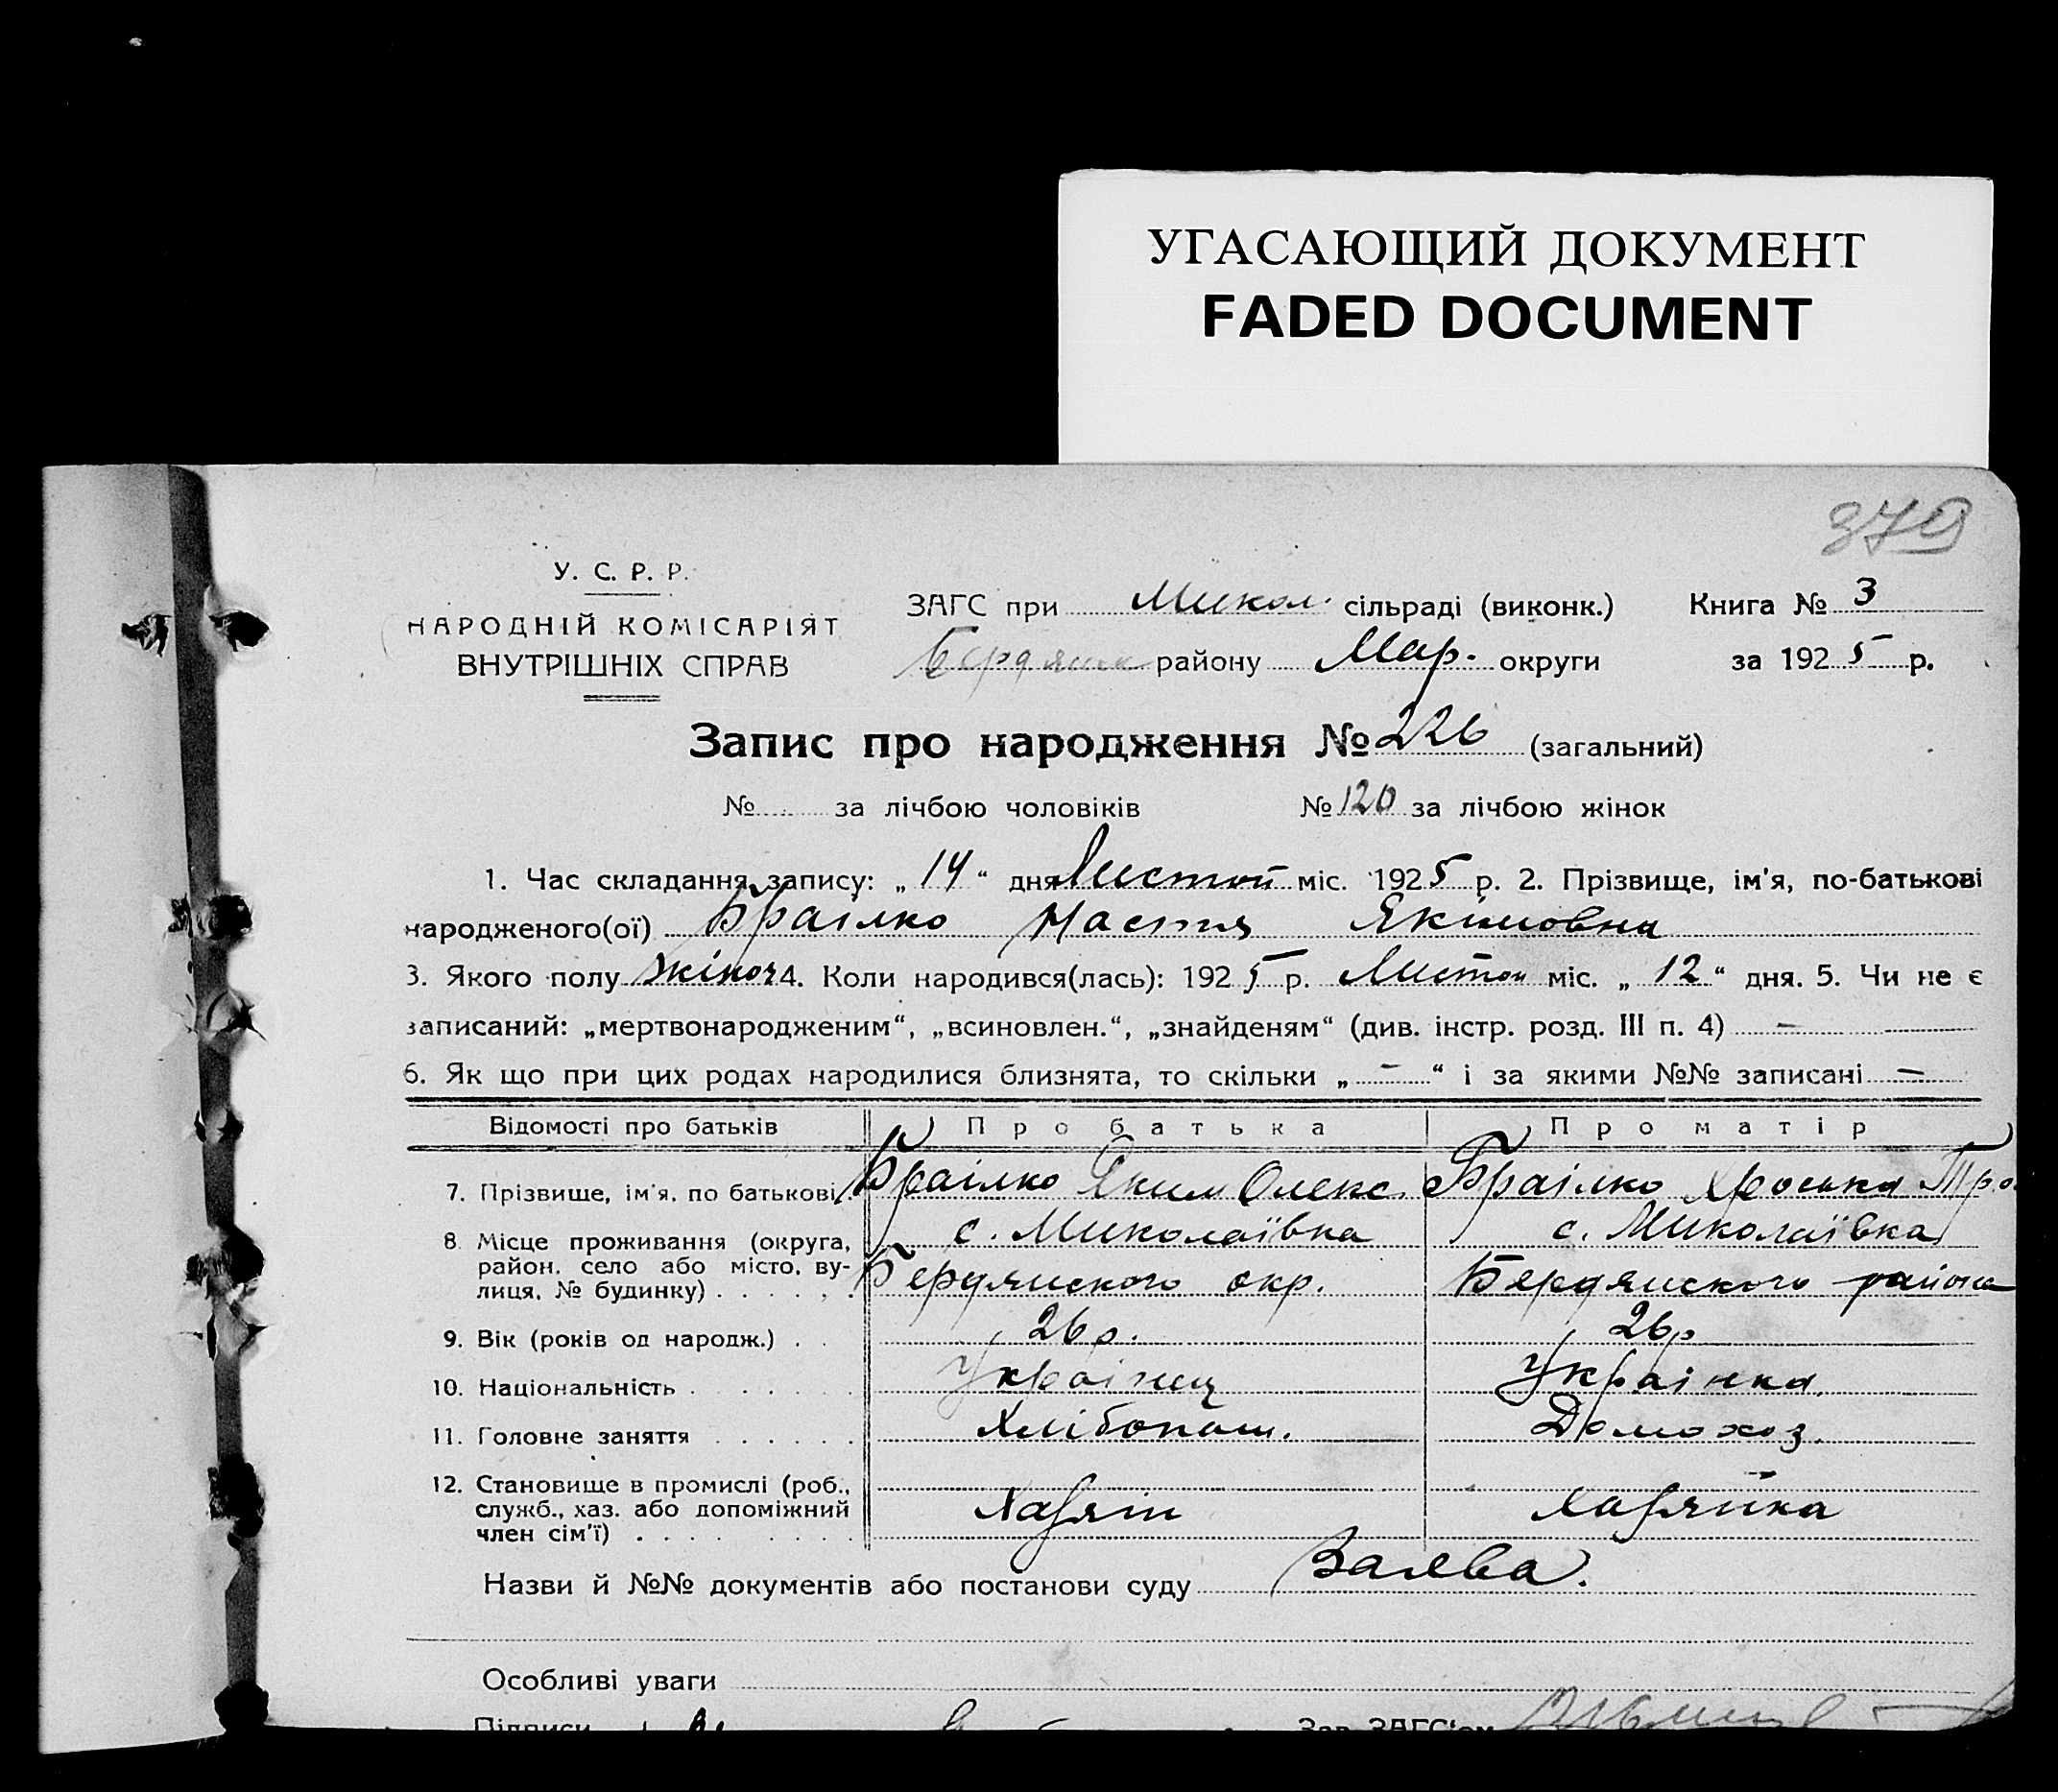 УГАСАЮЩИЙ ДОКУМЕНТ
FADED DOCUMENT
379
У. С. Р. Р.
НАРОДНІЙ КОМІСАРІЯТ
ВНУТРІШНІХ СПРАВ
ЗАГС при Микол. сільраді (виконк.) Книга № 3
Бердянск району Мар. округи за 1925 р.
Запис про народження № 226 (загальний)
№ за лічбою чоловіків № 120 за лічбою жінок
1. Час складання запису: „14“ дня Листоп міс. 1925 р. 2. Прізвище, ім'я, по-батькові
народженого(ої) Браілко Настя Якимовна
3. Якого полу жіноч 4. Коли народився(лась): 1925 р. Листоп міс. „12“ дня. 5. Чи не є
записаний: „мертвонародженим“, „всиновлен.“, „знайденям“ (див. інстр. розд. III п. 4) –
6. Як що при цих родах народилися близнята, то скільки „–“ і за якими №№ записані –
Відомості про батьків Про батька Про матір
7. Прізвище, ім'я, по батькові. Браілко Яким Олекс Браілко Хроська Тро
8. Місце проживання (округа, район, село або місто, вулиця, № будинку) . . . . . .
с. Миколаївка с. Миколаївка
Бердянского окр. Бердянского района
9. Вік (років од народж.) . . 26 р. 26 р
10. Національність . . . . . . . Українец Українка.
11. Головне заняття . . . . . . Хлібопаш. Домохоз.
12. Становище в промислі (роб., служб., хаз. або допоміжний член сім'ї) . . . . . . . .
Хазяін Хазяйка
Назви й №№ документів або постанови суду Заява.
Особливі уваги
Підписи Зав. ЗАГС'ом